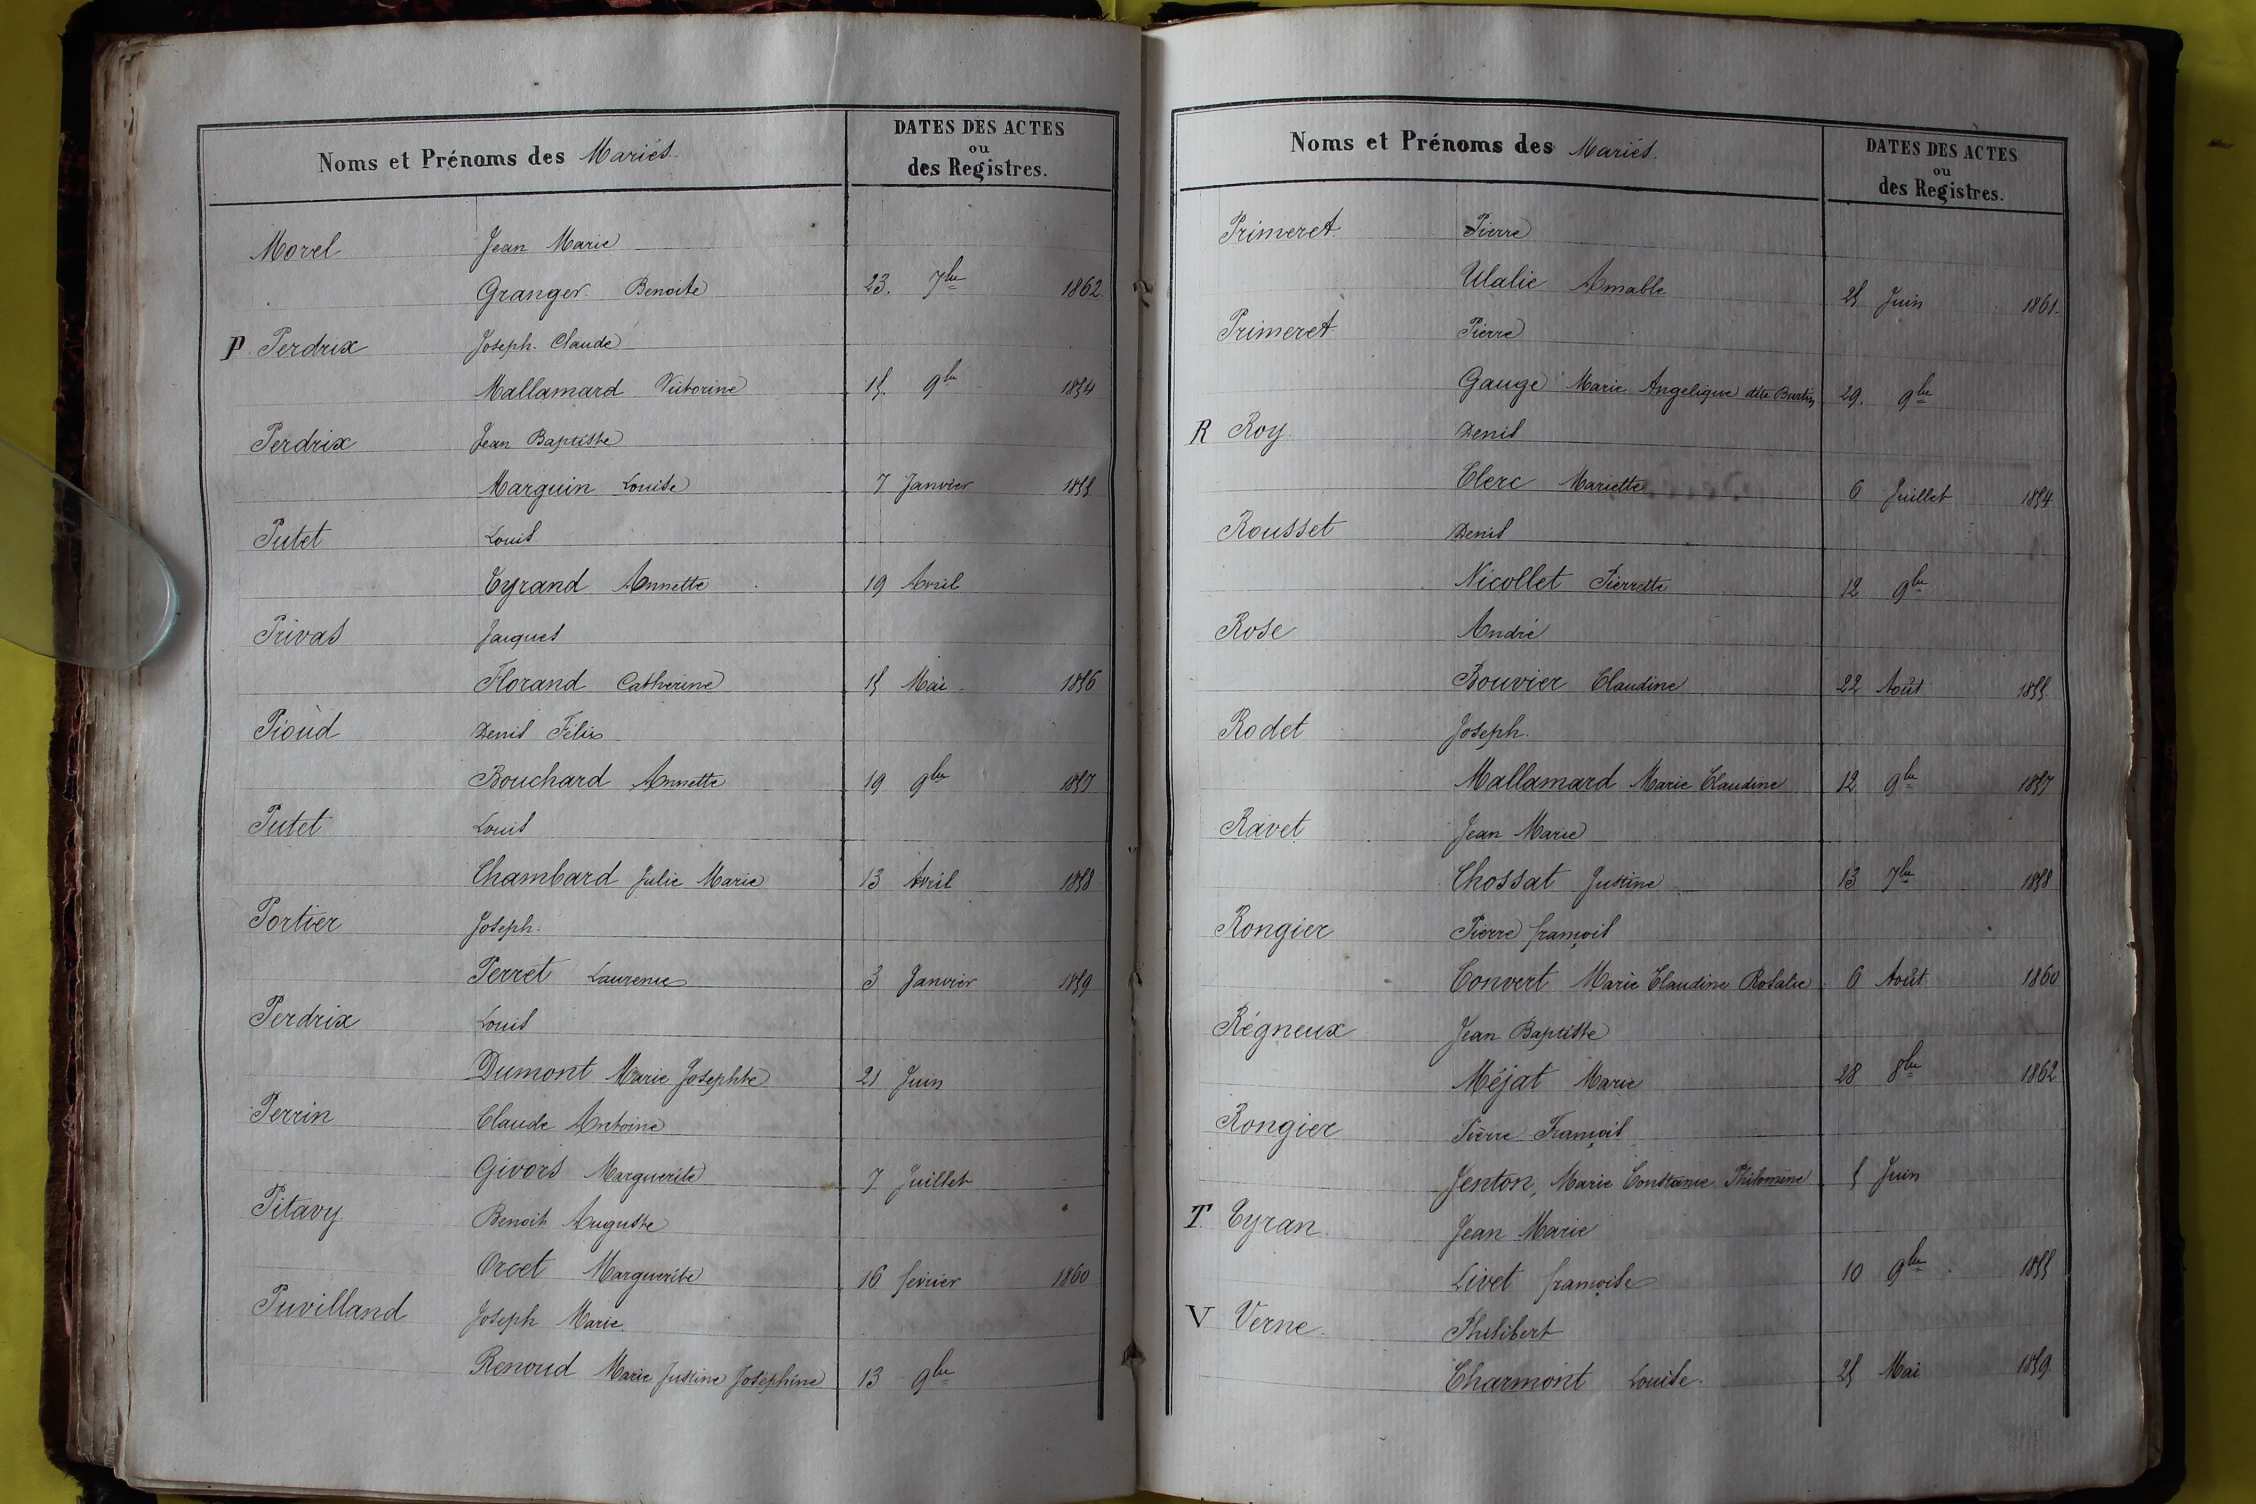 Noms et Prénoms des Mariés.
DATES DES ACTES
ou
des Registres.
Morel Jean Marie
Granger Benoite 23. 7bre 1862
P. Perdrix Joseph Claude
Mallamard Victorine 15. 9bre 1854
Perdrix Jean Baptiste
Marguin Louise 7 Janvier 1855
Putet Louis
Tyrand Annette 19 Avril
Privas Jacques
Florand Catherine 15 Mai 1856
Pioud Denis Félix
Bouchard Annette 19 9bre 1857
Putet Louis
Chambard Julie Marie 13 Avril 1858
Portier Joseph
Perret Laurence 3 Janvier 1859
Perdrix Louis
Dumont Marie Josephte 21 Juin
Perrin Claude Antoine
Givors Marguerite 7 Juillet
Pitavy Benoit Auguste
Orcet Marguerite 16 fevrier 1860
Puvilland Joseph Marie
Renoud Marie Justine Joséphine 13 9bre
Noms et Prénoms des Mariés.
DATES DES ACTES
ou
des Registres.
Primeret Pierre
Ulalie Amable 25 Juin 1861.
Primeret Pierre
Gauge Marie Angelique dite Burtin 29. 9bre
R Roy Denis
Clerc Mariette 6 Juillet 1854
Rousset Denis
Nicollet Pierrette 12 9bre
Rose André
Bouvier Claudine 22 Août 1855
Rodet Joseph.
Mallamard Marie Claudine 12 9bre 1857
Ravet Jean Marie
Chossat Justine 13 7bre 1858
Rongier Pierre françois
Convert Marie Claudine Rosalie 6 Août 1860
Régneux Jean Baptiste
Méjat Marie 28 8bre 1862
Rongier Pierre François
Jenton, Marie Constance Philomine 5 Juin
T. Tyran Jean Marie
Livet françoise 10 9bre 1855
V Verne. Philibert
Charmont Louise. 25 Mai 1859